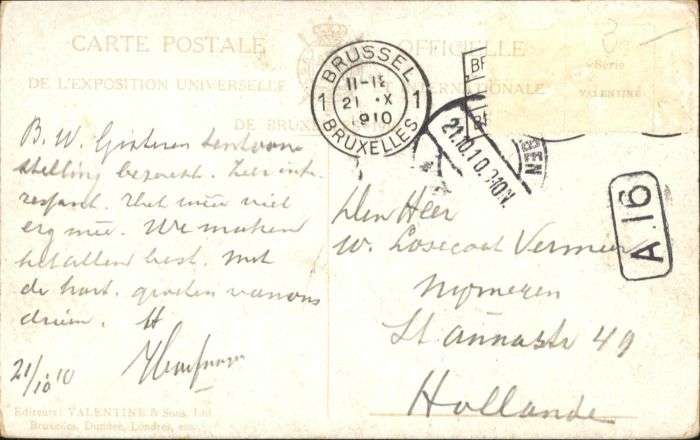 CARTE POSTALE OFFICIELLE
DE L'EXPOSITION UNIVERSELLE INTERNATIONALE
DE BRUX
3
Série
VALENTINE
BRUSSEL
11-12
1 21 X 1
1910
BRUXELLES
21.10.10.
A.16
B. W. Gisteren tentoon
stelling bezocht. Zeer inte
ressant. Het weer viel
erg mee. We maken
het allen best. Met
de hart. groeten van ons
drieën.
21/10 10
Den Heer
W. Losecaat Vermeer
Nijmegen
St Annastr 49
Hollande
Editeurs: VALENTINE & Sons, Ltd
Bruxelles, Dundee, Londres, etc.